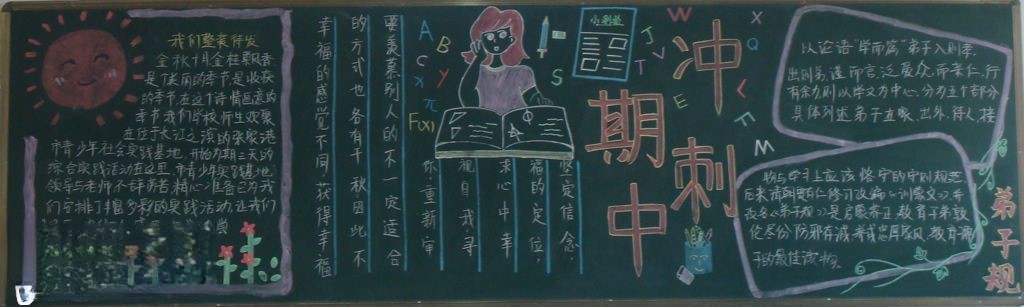 我们整装待发
金秋十月金桂飘香
是佳丽的季节是收获
的季节,在这个诗情画意的
季节我们学校师生欢聚
在位于长江之滨的张家港
市青少年社会实践基地,开始为期三天的
综合实践活动在这里,市青少年实践基地
领导与老师不辞劳苦,精心准备已为我
们安排了丰富多彩的实践活动,让我们
要羡慕别人的不一定适合
的方式也各有千秋因此不
幸福的感觉不同获得幸福
坚定信念,
福的定位,
求心中幸
视自我寻
你重新审
A
B
C
x
Y
π
F(x)
S
小测验
J
T
V
W
E
X
Q
L
F
M
期中
冲刺
以论语"学而篇"弟子入则孝,
出则弟,谨而信,泛爱众,而亲仁,行
有余力,则以学文为中心,分为五个部分
具体列述弟子在家、出外、待人、接
物与学习上应该恪守的守则规范
后来清朝贾存仁修订改编《训蒙文》,并
改名《弟子规》,是启蒙养正,教育子弟敦
伦尽份防邪存诚,养成忠厚家风,教育弟
子的最佳读物。
弟子规